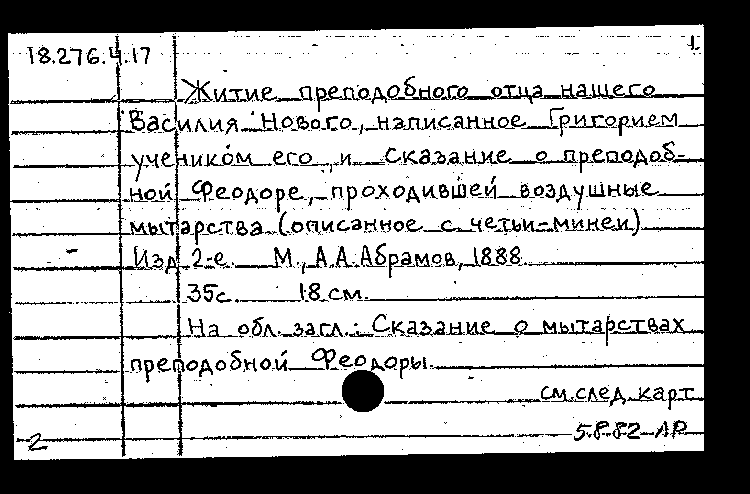 1.
18.276.4.17
Житие преподобного отца нашего
Василия Нового, написанное Григорием
учеником его, и Сказание о преподоб-
ной Феодоре, проходившей воздушные
мытарства (описанное с четьи-минеи)
Изд 2-е. М., А.А.Абрамов, 1888.
35с. 18 см.
На обл. загл.: Сказание о мытарствах
преподобной Феодоры.
см. след. карт
5.8.82 ЛР
2